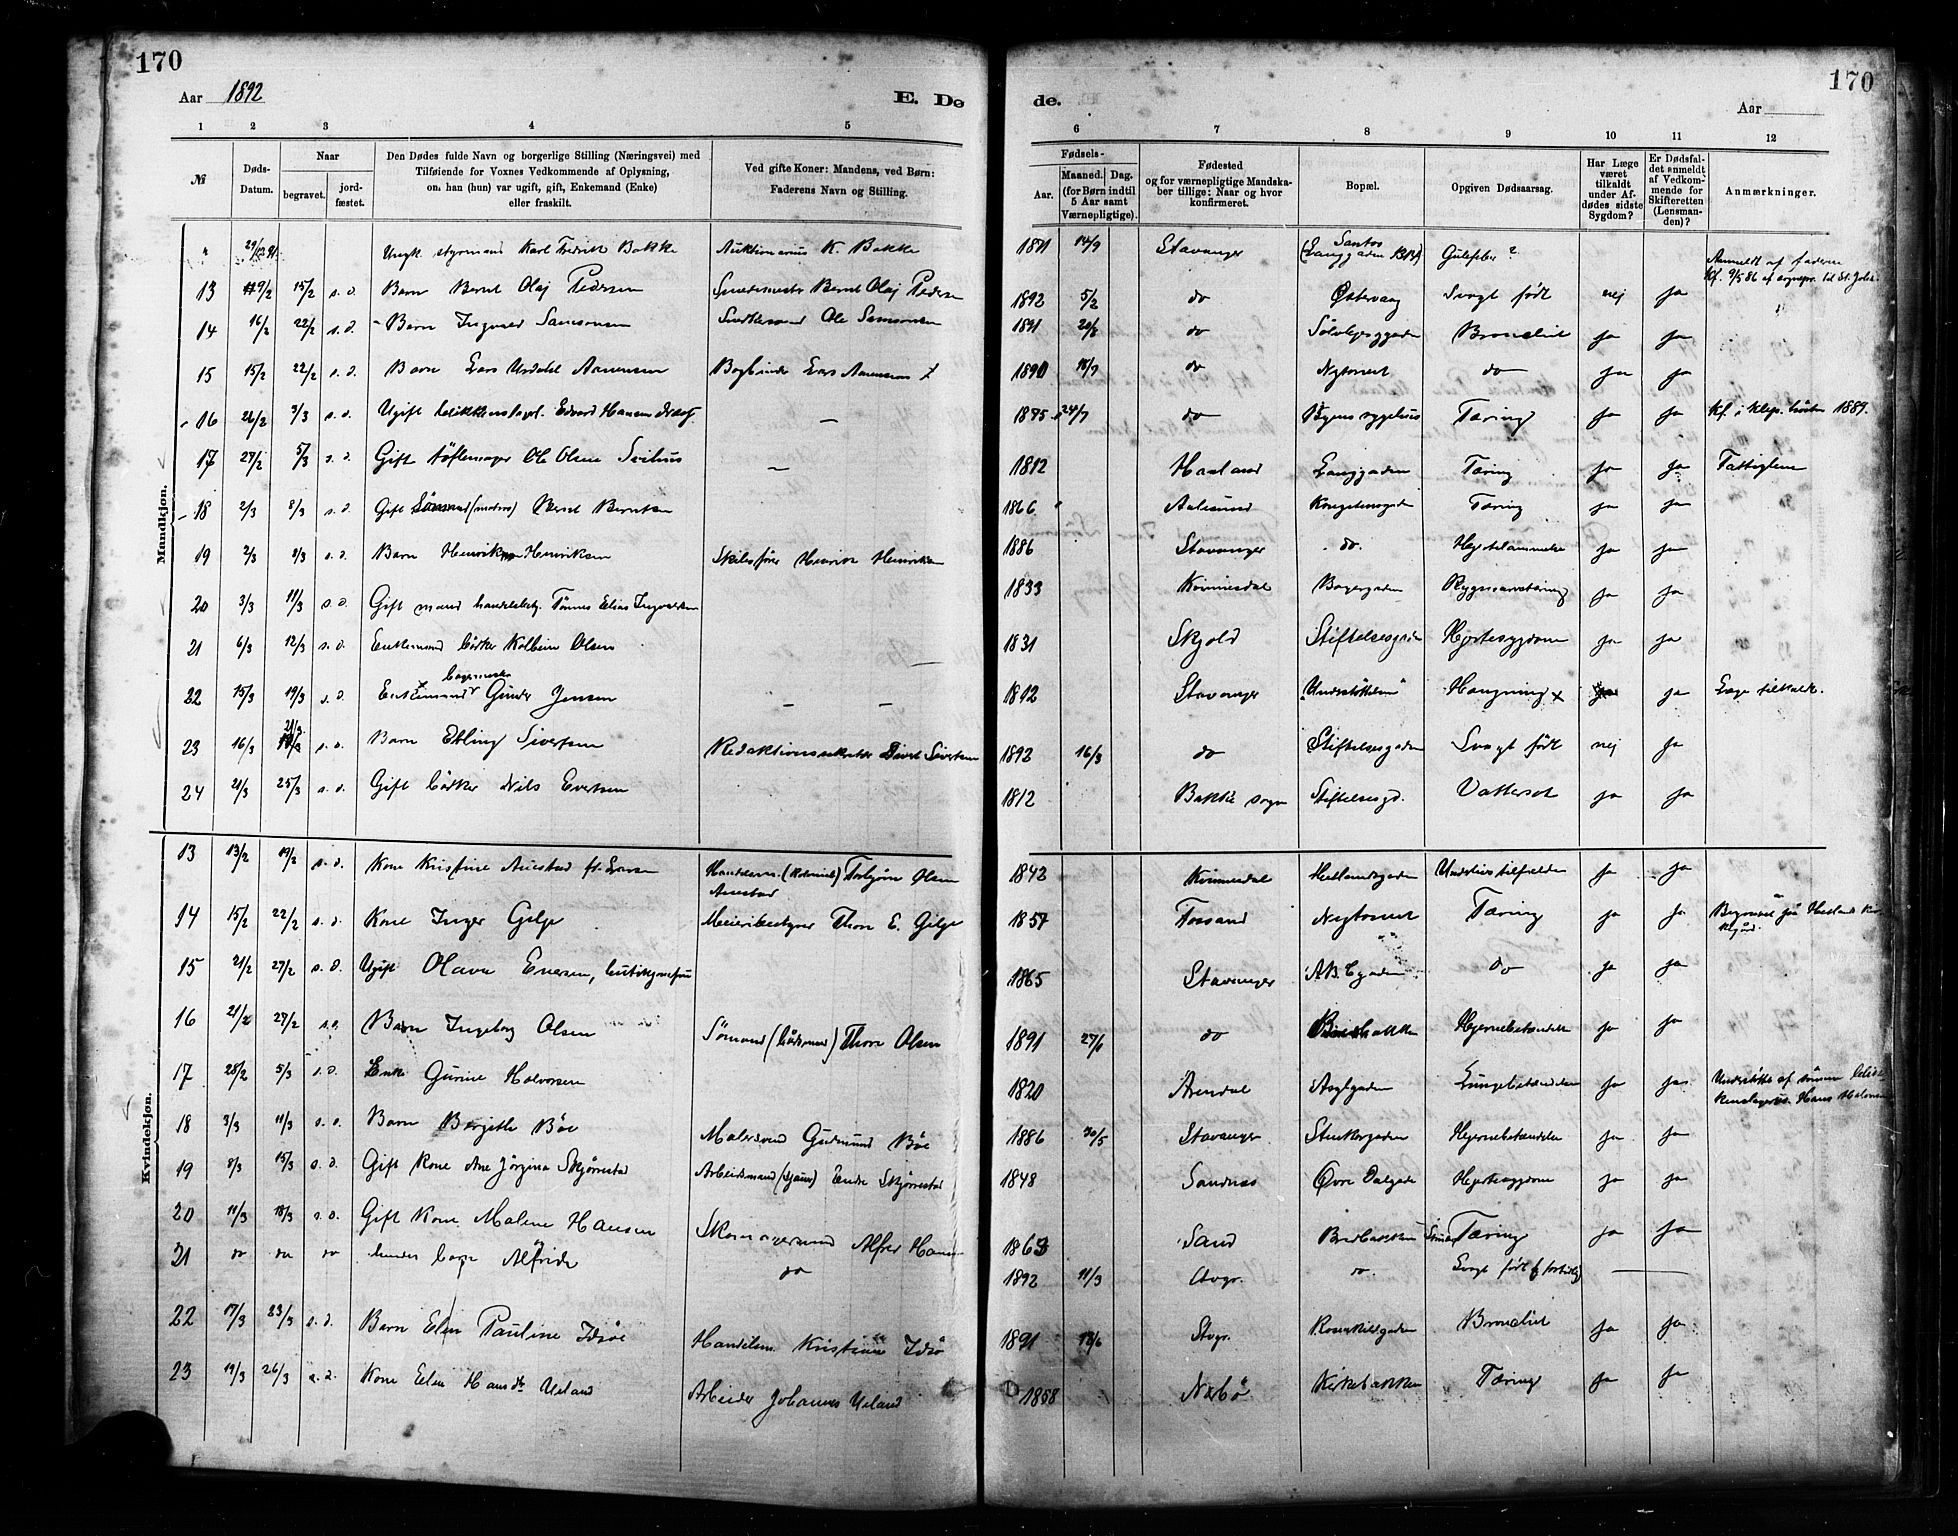 170
170
Aar 1892
E. De
de.
Aar
1 2 3 4 5 6 7 8 9 10 11 12
№
Døds-Datum.
Naar
begravet.
jord-fæstet.
Den Dødes fulde Navn og borgerlige Stilling (Næringsvei) med
Tilføiende for Voxnes Vedkommende af Oplysning,
om han (hun) var ugift, gift, Enkemand (Enke)
eller fraskilt.
Ved gifte Koner: Mandens, ved Børn:
Faderens Navn og Stilling.
Fødsels-
Aar.
Maaned. Dag.
(for Børn indtil
5 Aar samt
Værnepligtige).
Fødested
og for værnepligtige Mandska-
ber tillige: Naar og hvor
konfirmeret.
Bopæl.
Opgiven Dødsaarsag.
Har Læge
været
tilkaldt
under Af-
dødes sidste
Sygdom?
Er Dødsfal-
det anmeldt
af Vedkom-
mende for
Skifteretten
(Lensman-
den)?
Anmærkninger.
Mandkjøn.
" 29/12 91. Ungk. styrmand Karl Fredrik Bakke Auktionarius K. Bakke 1871 14/9 Stavanger Santos Gulefeber ? Anmeldt af faderen
13 9/2 15/2 s. d. Barn Bernt Olaj Pedersen Smedemester Bernt Olaj Pedersen 1892 5/2 do Østervaag Svagt født nej ja
14 16/2 22/2 s. d. Barn Ingvald Samsonsen Ole Samsonsen 1891 20/8 do Bronchit ja ja
15 15/2 22/2 s. d. Barn Lars Urdahl Aanensen Bogbinder Lars Aanensen 1890 18/7 do Nytorvet do ja ja
16 26/2 3/3 s. d. Ugift Edvard Hansen — 1875 24/7 do Byens sygehus Tæring ja ja Kf. i Klep. høsten 1889.
17 27/2 5/3 s. d. Gift tøflemager Ole Olsen — 1812 Haaland Langgaden Tæring ja ja Fattiglem
18 2/3 8/3 s. d. Gift Sømand (matros) Bernt Berntsen 1866 Aalesund Kongstensgaden Tæring ja ja
19 2/3 8/3 s. d. Barn Henrik Henriksen Skibsfører Henrik Henriksen 1886 Stavanger do. ja ja
20 3/3 11/3 s. d. Gift mand handelsbetj. Tønnes Elias Ingvaldsen 1833 Kvinnesdal Bagergaden Rygmarvstæring ja ja
21 6/3 12/3 s. d. Enkemand bødker Kolbein Olsen — 1831 Skjold Stiftelsesgaden Hjertesygdom ja ja
22 15/3 19/3 s. d. Enkemand bagermester Gunder Jensen — — 1812 Stavanger Hængning x ja Læge tilkaldt.
23 16/3 21/3 s. d. Barn Erling Sivertsen Redaktionssekretær Sivert Sivertsen 1892 16/3 do Stiftelsesgaden Svagt født nej ja
24 21/3 25/3 s. d. Gift bødker Nils Evertsen 1812 Bakke sogn Stiftelsesgd. Vattersot ja ja
Kvindekjøn.
13 13/2 19/2 s. d. Kone Kristine Auestad f. Handelsm. Torbjørn Olsen
Auestad 1842 Kvinnesdal Hetlandsgaden Underlivstilfælde ja ja
14 15/2 22/2 s. d. Kone Inger Gilje Meieribestyrer Thore E. Gilje 1857 Fossand Nytorvet Tæring ja ja Begravet paa Hetlands Kirkegård.
15 21/2 27/2 s. d. Ugift Olava Evensen, 1865 Stavanger do ja ja
16 21/2 27/2 s. d. Barn Ingeborg Olsen Sømand (bådsmand) Thore Olsen 1891 27/1 do Hjernebetændelse ja ja
17 28/2 5/3 s. d. Enke Gurine Halvorsen 1820 Arendal Asylgaden Lungebetændelse ja ja
18 3/3 11/3 s. d. Barn Bergithe Bøe Malersvend Gudmund Bøe 1886 30/5 Stavanger Stenkargaden Hjernebetændelse ja ja
19 8/3 15/3 s. d. Gift Kone Ane Jørgina Skjørestad Arbeidsmand (sjauer) Endre Skjørestad 1848 Sandnæs Øvre Dalgade Hjertesygdom ja ja
20 11/3 18/3 s. d. Gift Kone Malene Hansen Skomagersvend Alfred Hansen 1863 Sand Bredbakken Tæring ja ja
21 do do do hendes barn Alfride do 1892 11/3 Stvgr. do. Svagt født —
22 17/3 23/3 s. d. Barn Elen Pauline Idsøe Handelsm. Kristian Idsø 1891 18/6 Stvgr. Rosenkildgaden Bronchit ja ja
23 19/3 26/3 s. d. Kone Elen Hansdtr. Ueland Arbeider Johannes Ueland 1858 Nærbø Kirkebakken Tæring ja ja